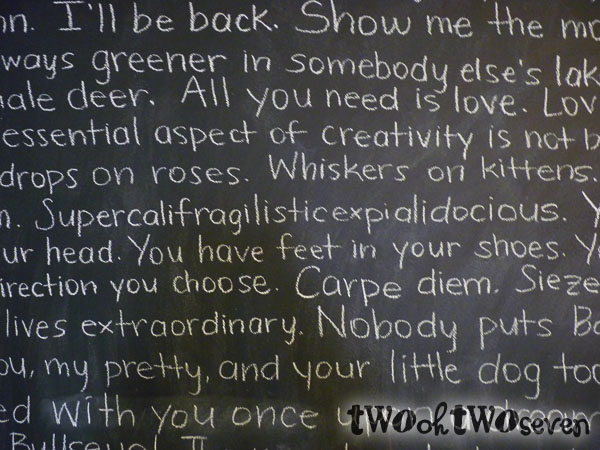 I'll be back. Show me the
greener in somebody else's
deer. All you need is love.
essential aspect of creativity is not
drops on roses. Whiskers on kittens.
Supercalifragilisticexpialidocious.
head. You have feet in your shoes.
you choose. Carpe diem. Sieze
lives extraordinary. Nobody puts
my pretty, and your little dog
with you once
Bullseye!
twoohtwoseven